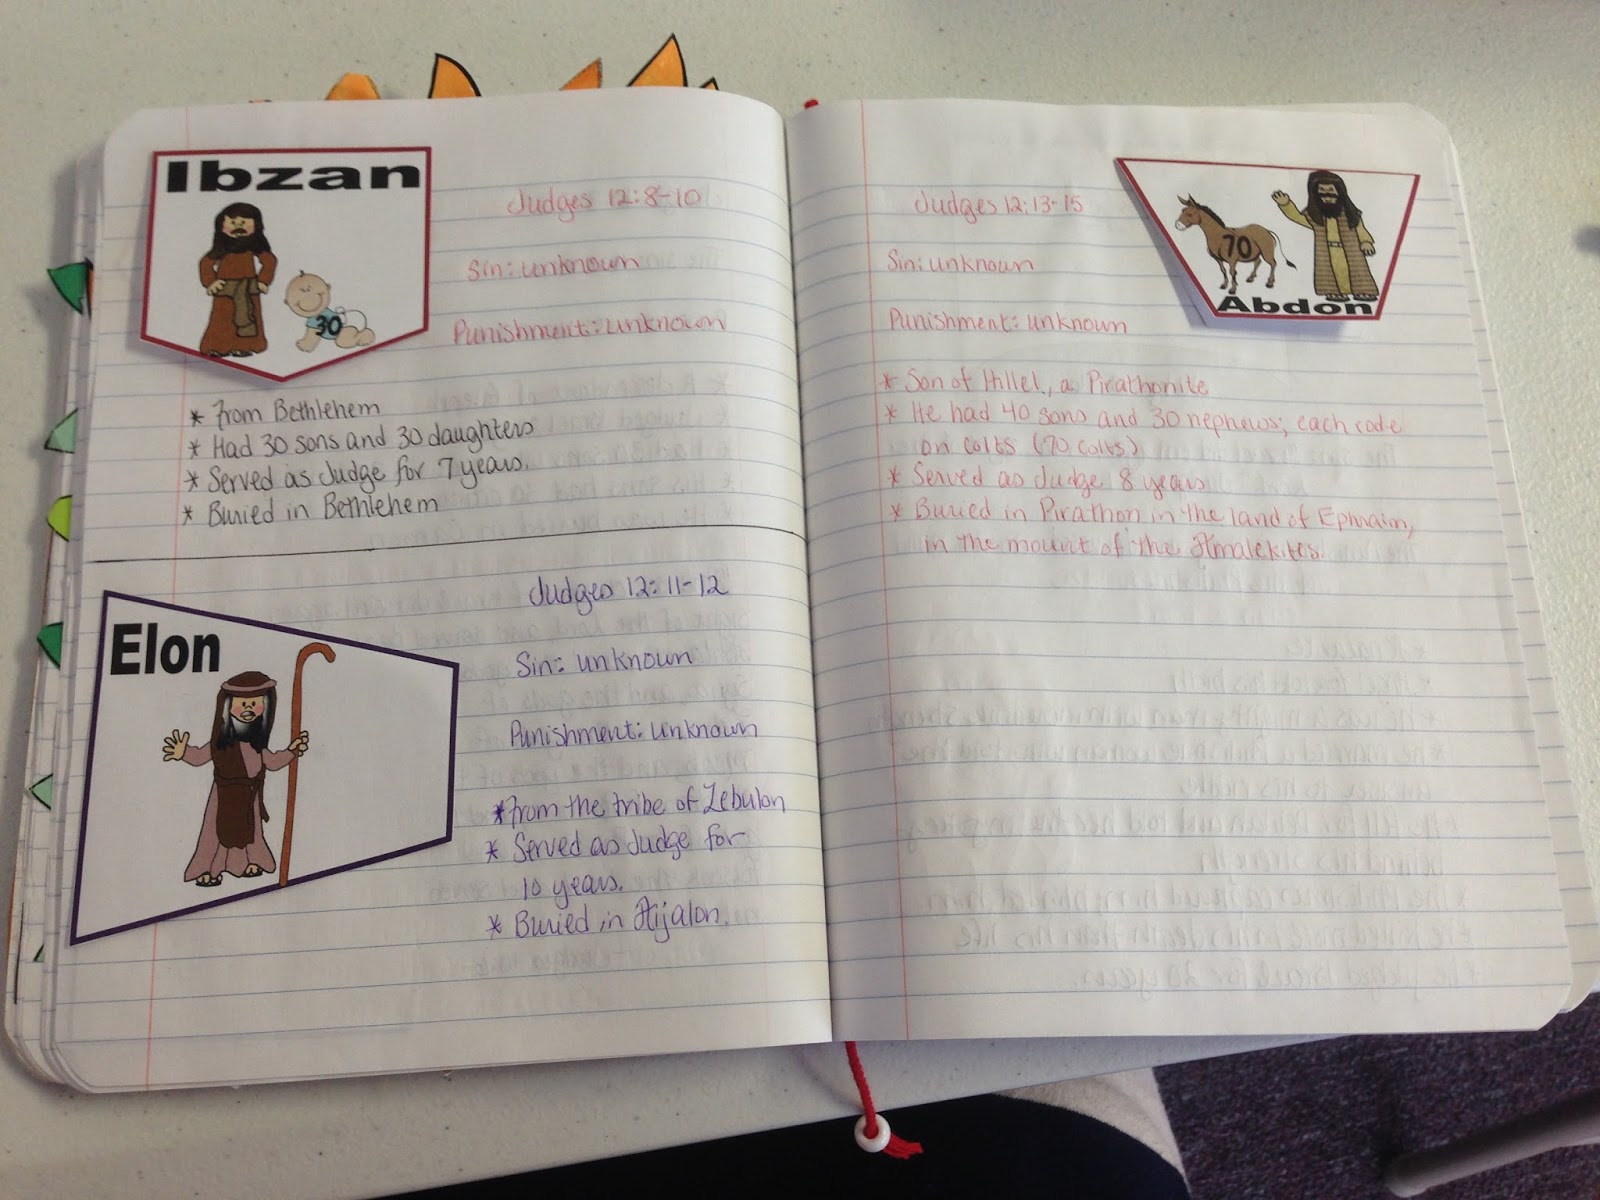 Ibzan
30
Judges 12:8-10
Sin: unknown
Punishment: unknown
* From Bethlehem
* Had 30 sons and 30 daughters
* Served as Judge for 7 years.
* Buried in Bethlehem
Elon
Judges 12:11-12
Sin: unknown
Punishment: unknown
* From the tribe of Zebulon
* Served as Judge for
10 years.
* Buried in Aijalon.
Judges 12:13-15
70
Abdon
Sin: unknown
Punishment: unknown
* Son of Hillel, a Pirathonite
* He had 40 sons and 30 nephews; each rode
on colts (70 colts)
* Served as Judge 8 years
* Buried in Pirathon in the land of Ephraim,
in the mount of the Amalekites.